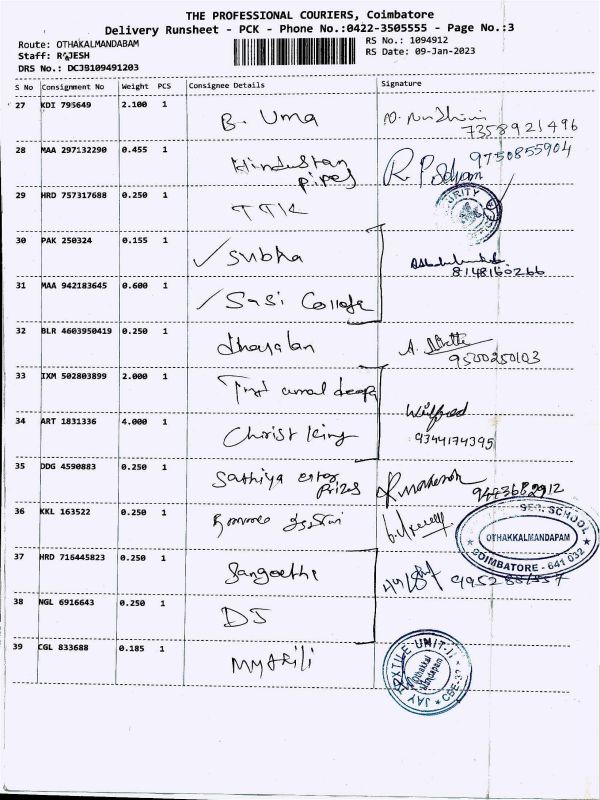 THE PROFESSIONAL COURIERS, Coimbatore
Delivery Runsheet - PCK - Phone No.:0422-3505555 - Page No.:3
Route: OTHAKALMANDABAM
RS No.: 1094912
Staff: RAJESH
RS Date: 09-Jan-2023
DRS No.: DCJB109491203
S No Consignment No Weight PCS Consignee Details Signature
27 KDI 795649 2.100 1 B. Uma
7358921496
28 MAA 297132290 0.455 1 Hindustan
pipes
9750855904
29 HRD 757317688 0.250 1 TTK
30 PAK 250324 0.155 1 Subha
8148160266
31 MAA 942183645 0.600 1 Sasi College
32 BLR 4603950419 0.250 1 dhayalan
9500250103
33 IXM 502803899 2.000 1
34 ART 1831336 4.000 1 Christ King Wilfred
9344174395
35 DDG 4590883 0.250 1 Sathiya enter
prizes
9443682912
36 KKL 163522 0.250 1
SEC. SCHOOL
OTHAKKALMANDAPAM
COIMBATORE - 641 032
37 HRD 716445823 0.250 1 Sangeethi
38 NGL 6916643 0.250 1 DJ
39 CGL 833688 0.185 1
JAY TEXTILE UNIT-II
Othakkal
Mandapam
CBE-32